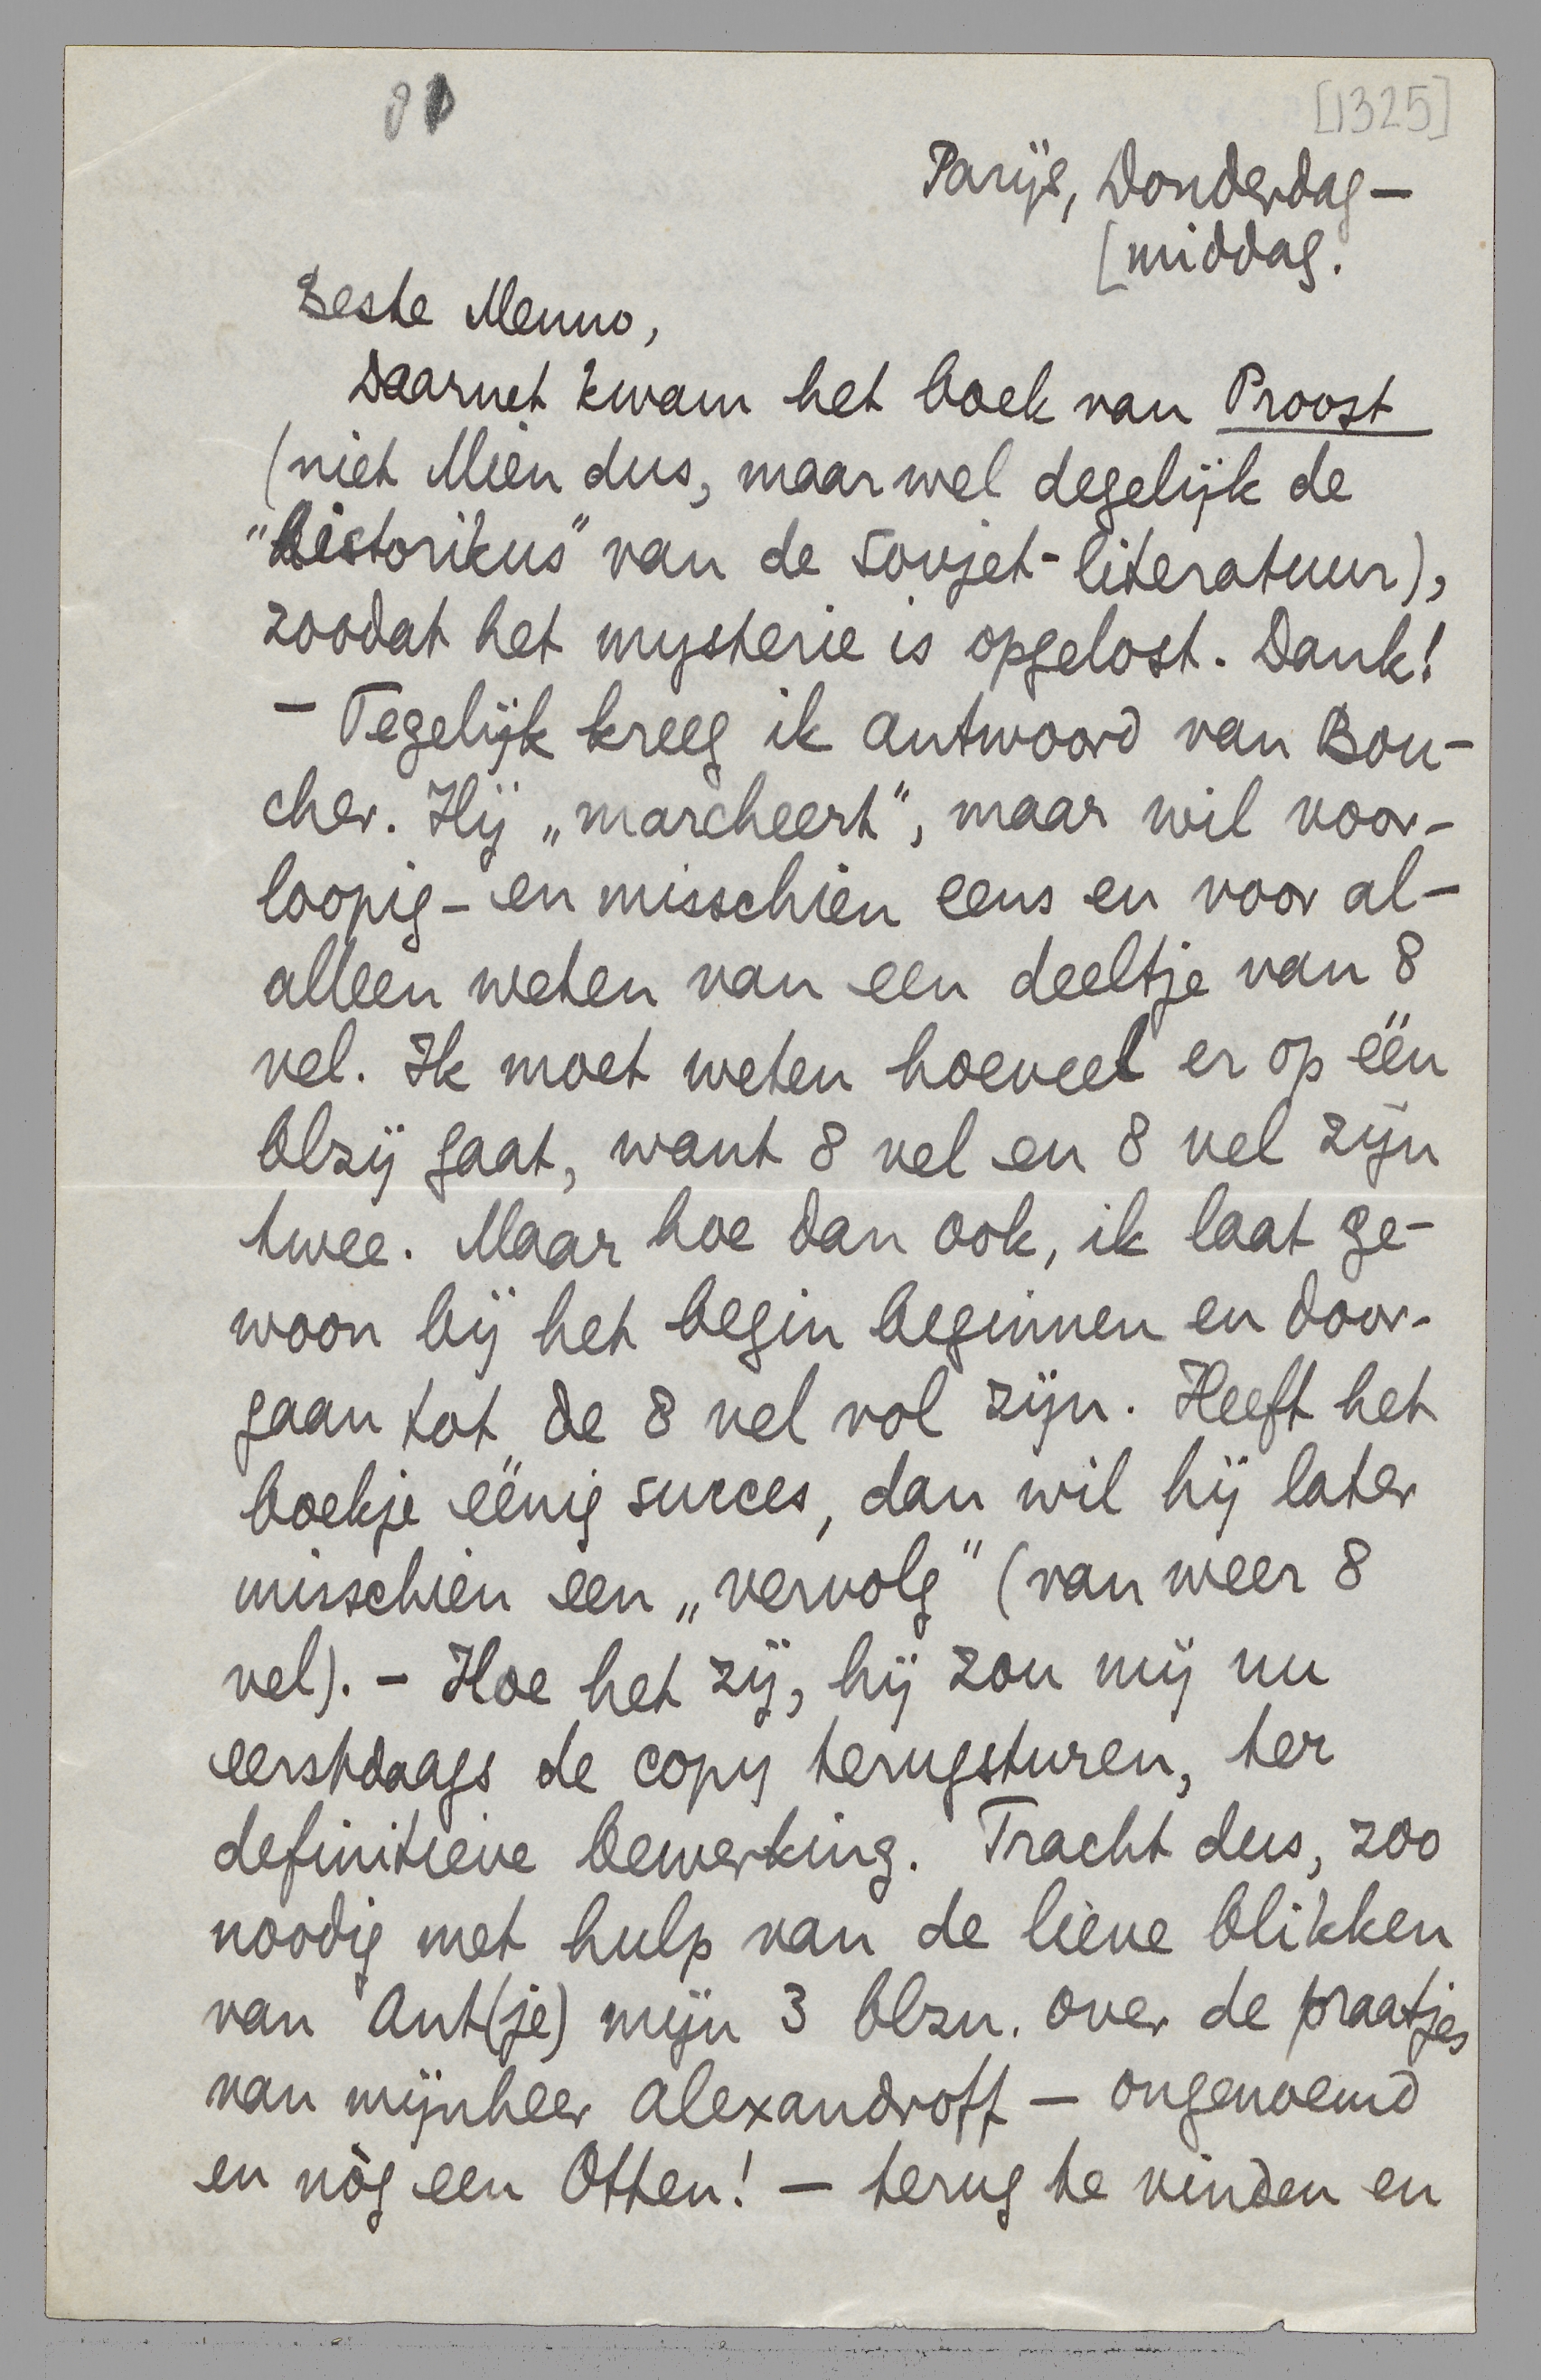 [1325]
Parijs, Donderdag-
[middag.
Beste Menno,
Daarnet kwam het boek van Proost
(niet Mien dus, maar wel degelijk de
"historikus" van de sovjet-literatuur),
zoodat het mysterie is opgelost. Dank!
- Tegelijk kreeg ik antwoord van Bou-
cher. Hij „marcheert", maar wil voor-
loopig - en misschien eens en voor al -
alleen weten van een deeltje van 8
vel. Ik moet weten hoeveel er op één
blzij gaat, want 8 vel en 8 vel zijn
twee. Maar hoe dan ook, ik laat ge-
woon bij het begin beginnen en door-
gaan tot de 8 vel vol zijn. Heeft het
boekje eénig succes, dan wil hij later
misschien een „vervolg" (van weer 8
vel). - Hoe het zij, hij zou mij nu
eerstdaags de copy terugsturen, ter
definitieve bewerking. Tracht dus, zoo
noodig met hulp van de lieve blikken
van Ant(je) mijn 3 blzn. over de praatjes
van mijnheer Alexandroff - ongenoemd
en nòg een Otten! - terug te vinden en